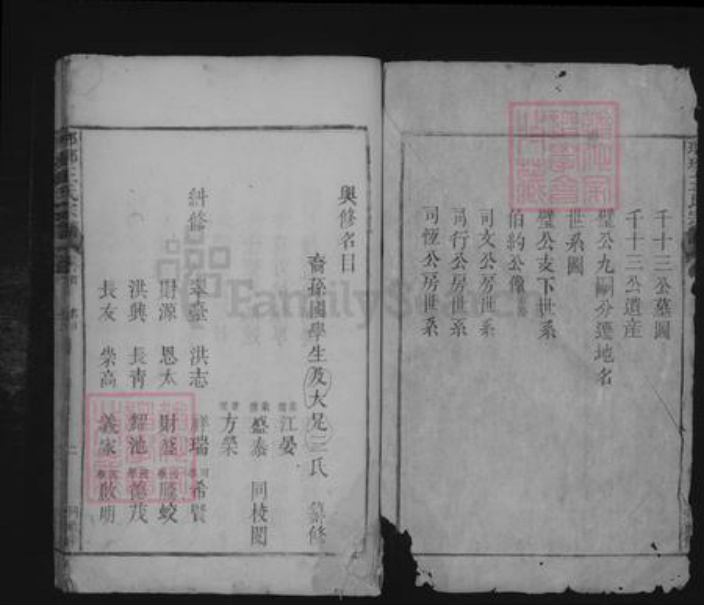 千十三公墓圖
千十三公遺産
璧公九嗣分遷地名
世系圖
璧公支下世系
伯約公像
司文公房世系
司行公房世系
司恆公房世系
興修名目
裔孫國學生及大
氏 纂修
江晏
盛泰 同校閱
方榮
糾修
洪志 祥瑞 希賢
財源 恩太 財盛 蛟
洪興 長靑 耀池 茂
長友 崇高 義家 啟明
FamilySearch